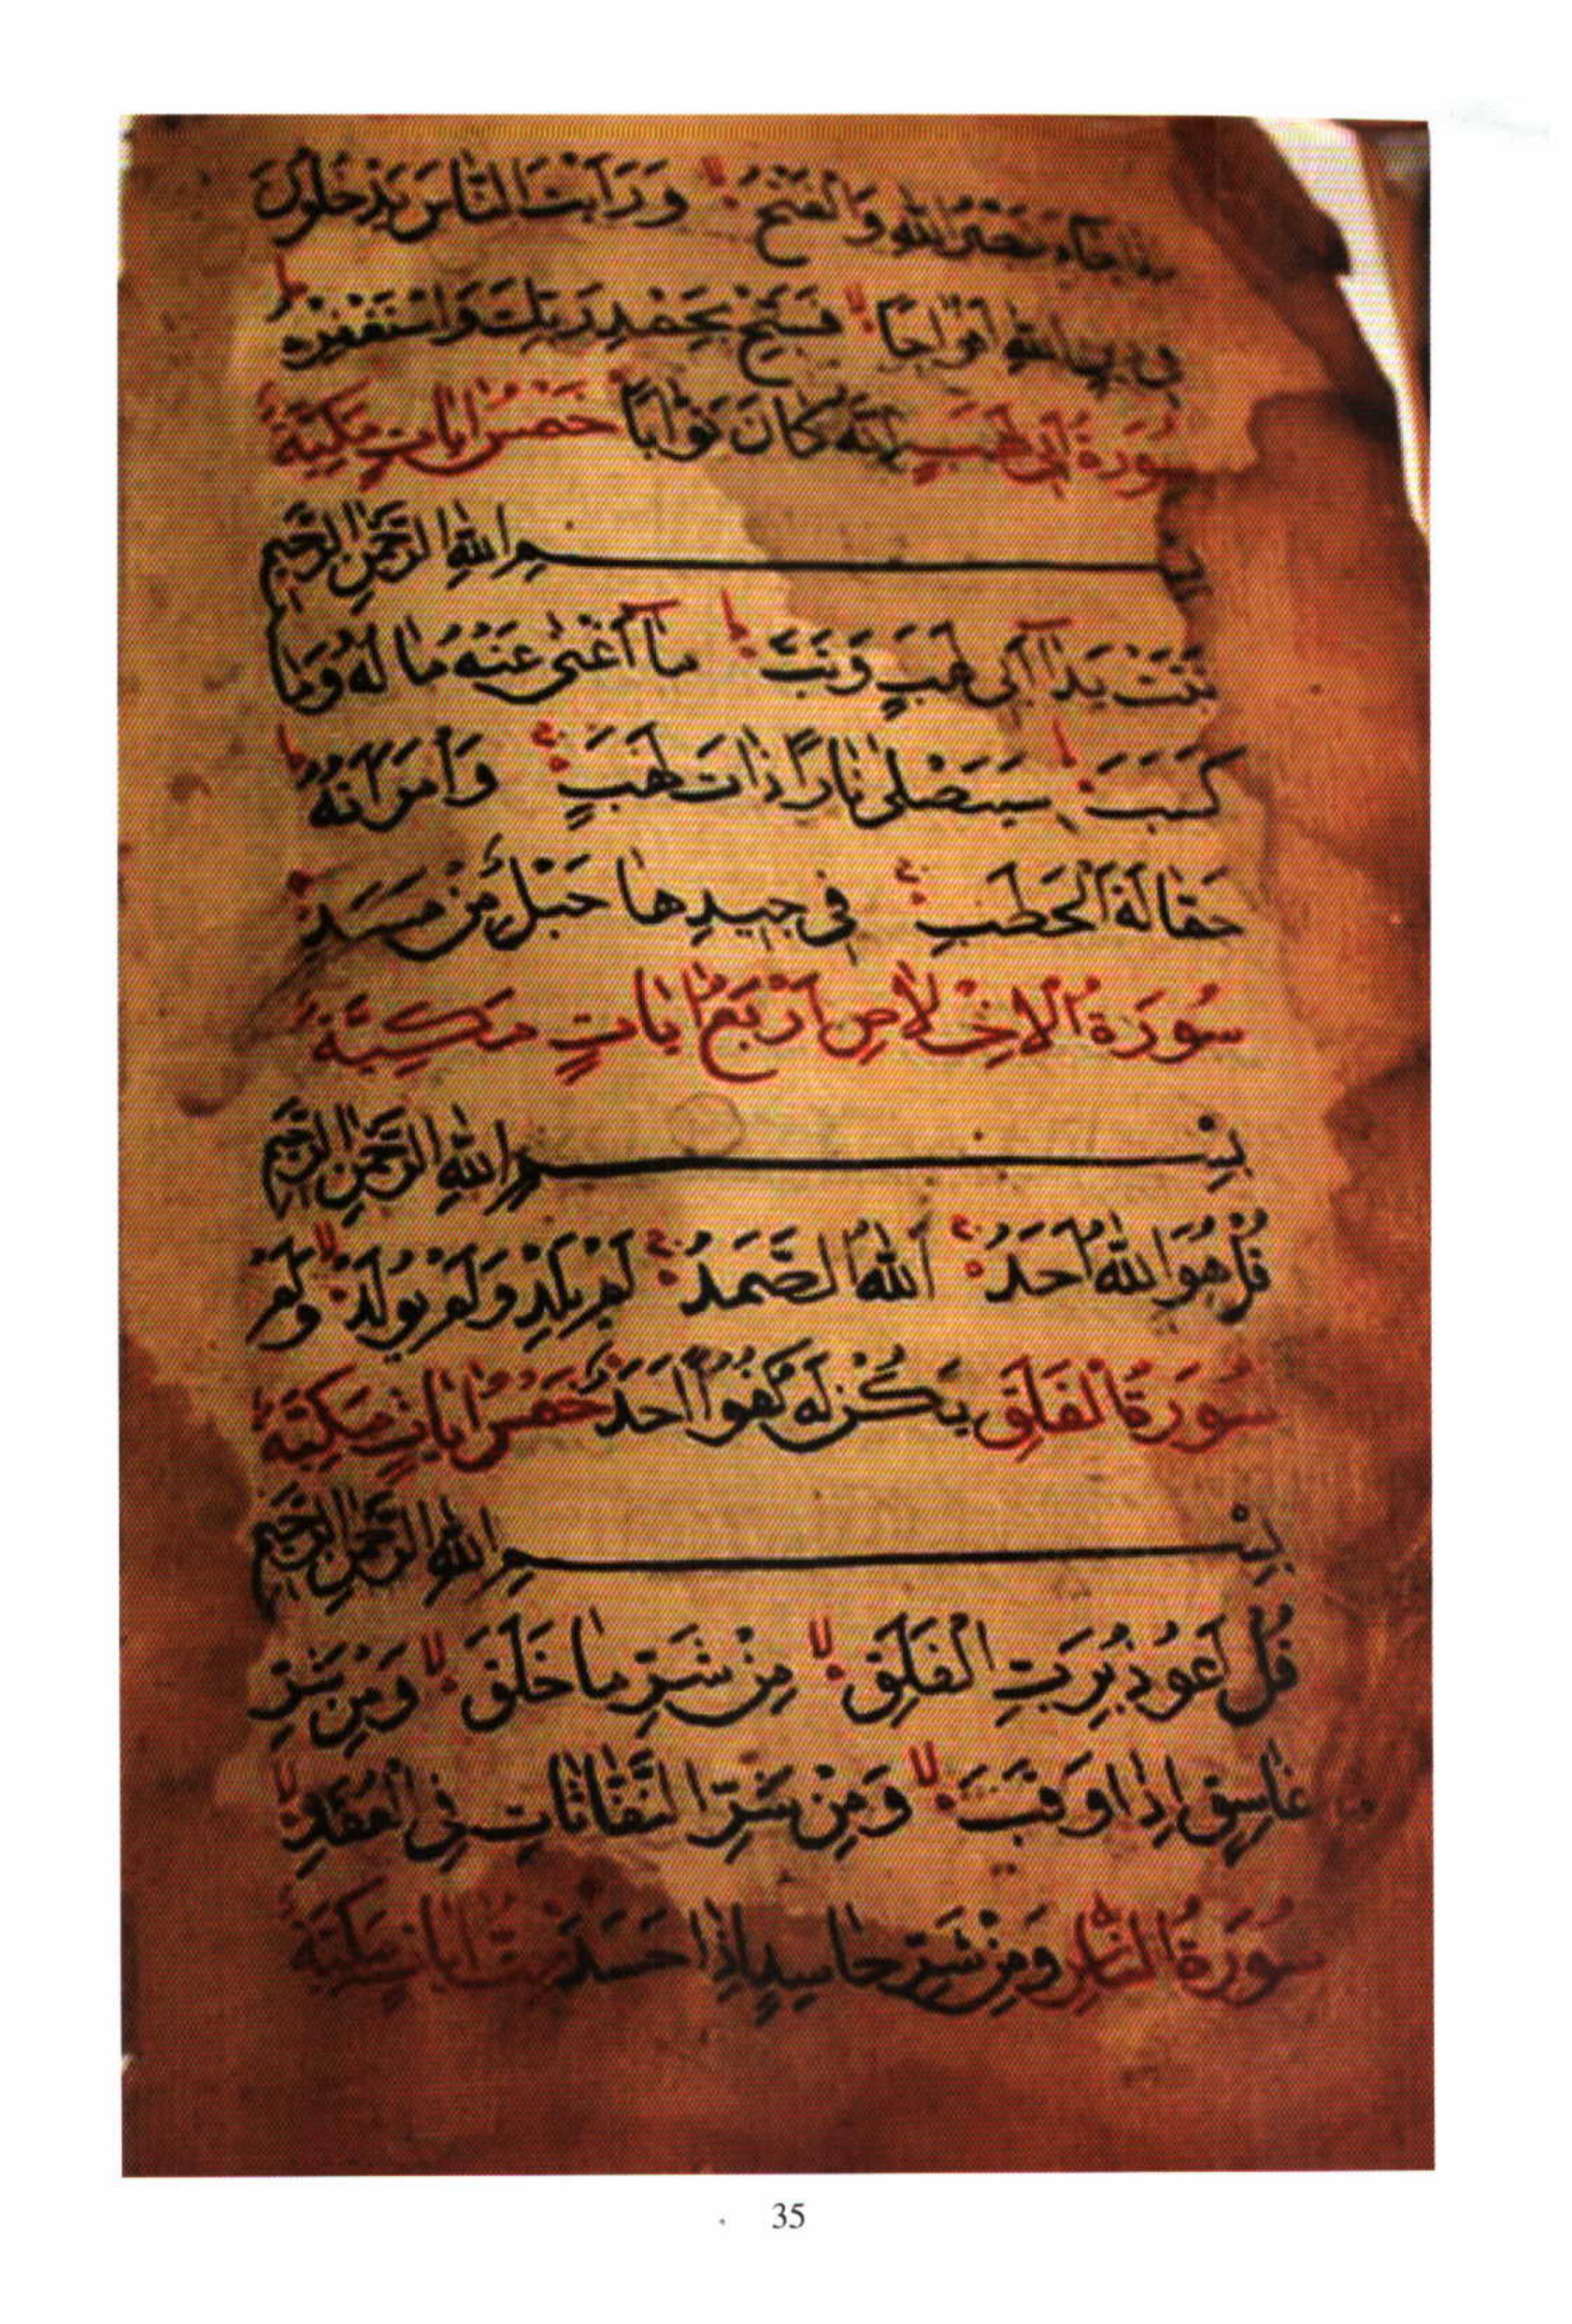 اِذَا جَاءَ نَصْرُ اللّٰهِ وَالْفَتْحُ وَرَاَيْتَ النَّاسَ يَدْخُلُونَ
فِي دِينِ اللّٰهِ اَفْوَاجًا فَسَبِّحْ بِحَمْدِ رَبِّكَ وَاسْتَغْفِرْهُ ط
سُورَةُ اَبِي لَهَبٍ اِنَّهُ كَانَ تَوَّابًا خَمْسُ اٰيَاتٍ مَكِّيَّةٌ
بِسْمِ اللّٰهِ الرَّحْمٰنِ الرَّحِيمِ
تَبَّتْ يَدَا اَبِي لَهَبٍ وَتَبَّ ط مَا اَغْنٰى عَنْهُ مَالُهُ وَمَا
كَسَبَ ط سَيَصْلٰى نَارًا ذَاتَ لَهَبٍ ج وَامْرَاَتُهُ ط
حَمَّالَةَ الْحَطَبِ ج فِي جِيدِهَا حَبْلٌ مِنْ مَسَدٍ
سُورَةُ الْاِخْلَاصِ اَرْبَعُ اٰيَاتٍ مَكِّيَّةٌ
بِسْمِ اللّٰهِ الرَّحْمٰنِ الرَّحِيمِ
قُلْ هُوَ اللّٰهُ اَحَدٌ ج اَللّٰهُ الصَّمَدُ ج لَمْ يَلِدْ وَلَمْ يُولَدْ لا وَلَمْ
سُورَةُ الْفَلَقِ يَكُنْ لَهُ كُفُوًا اَحَدٌ خَمْسُ اٰيَاتٍ مَكِّيَّةٌ
بِسْمِ اللّٰهِ الرَّحْمٰنِ الرَّحِيمِ
قُلْ اَعُوذُ بِرَبِّ الْفَلَقِ لا مِنْ شَرِّ مَا خَلَقَ لا وَمِنْ شَرِّ
غَاسِقٍ اِذَا وَقَبَ لا وَمِنْ شَرِّ النَّفَّاثَاتِ فِي الْعُقَدِ لا
سُورَةُ النَّاسِ وَمِنْ شَرِّ حَاسِدٍ اِذَا حَسَدَ سِتُّ اٰيَاتٍ مَكِّيَّةٌ
35